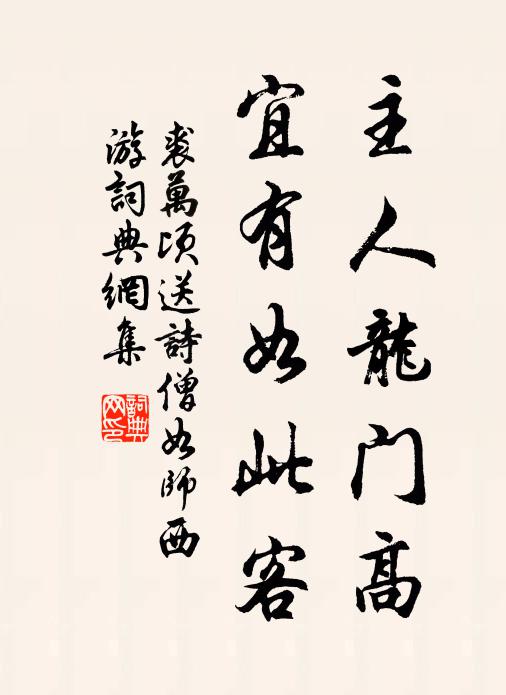 主人龍门高
宜有如此客
裘萬頃送詩僧如師西
游詞典網集
詞典
网印